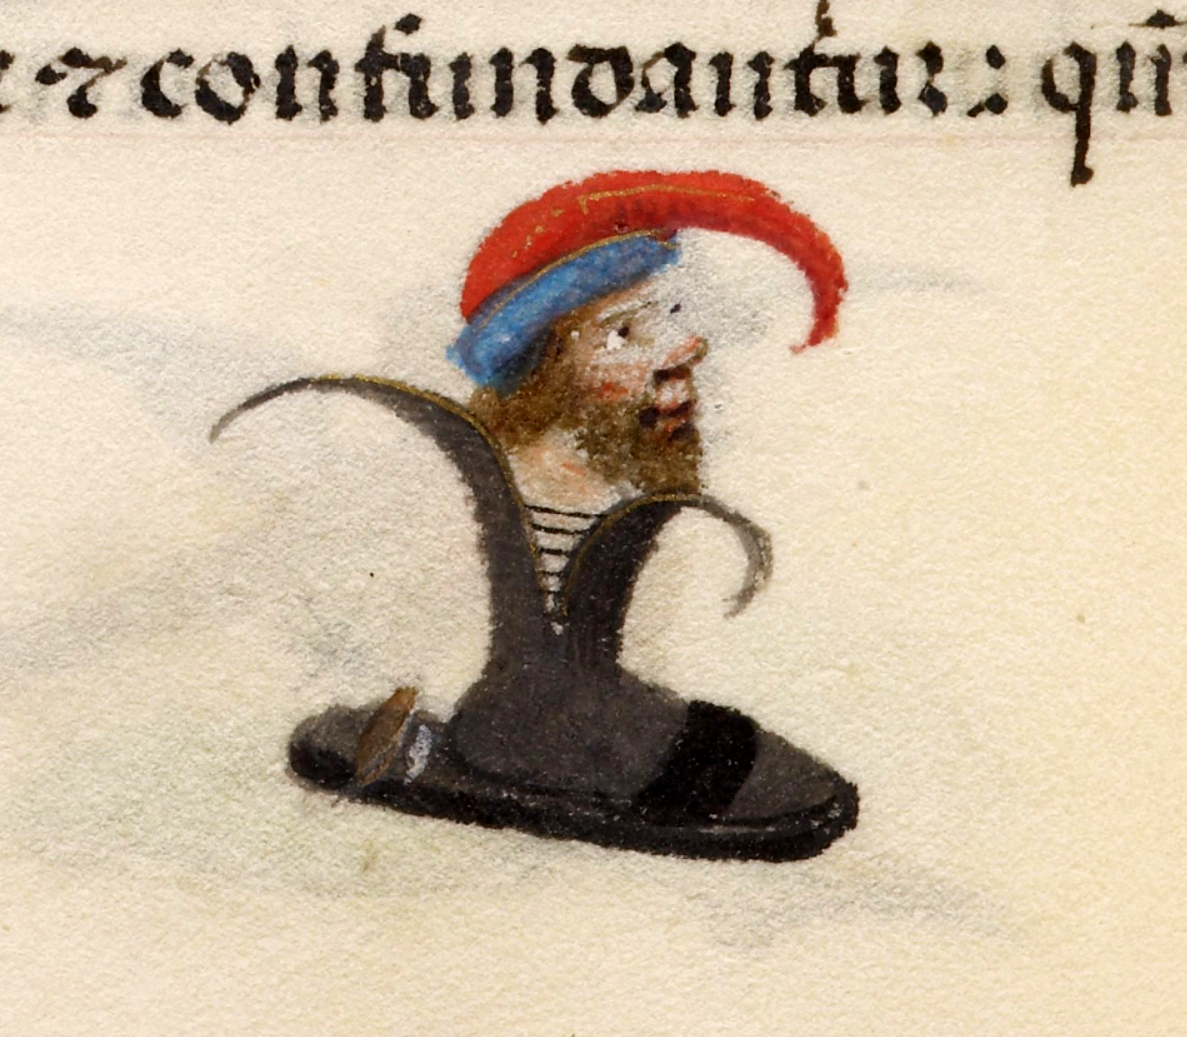 ⁊ confundantur: